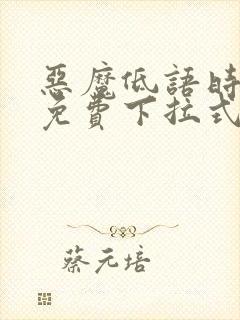 惡魔低語時
免費下拉式
蔡元培